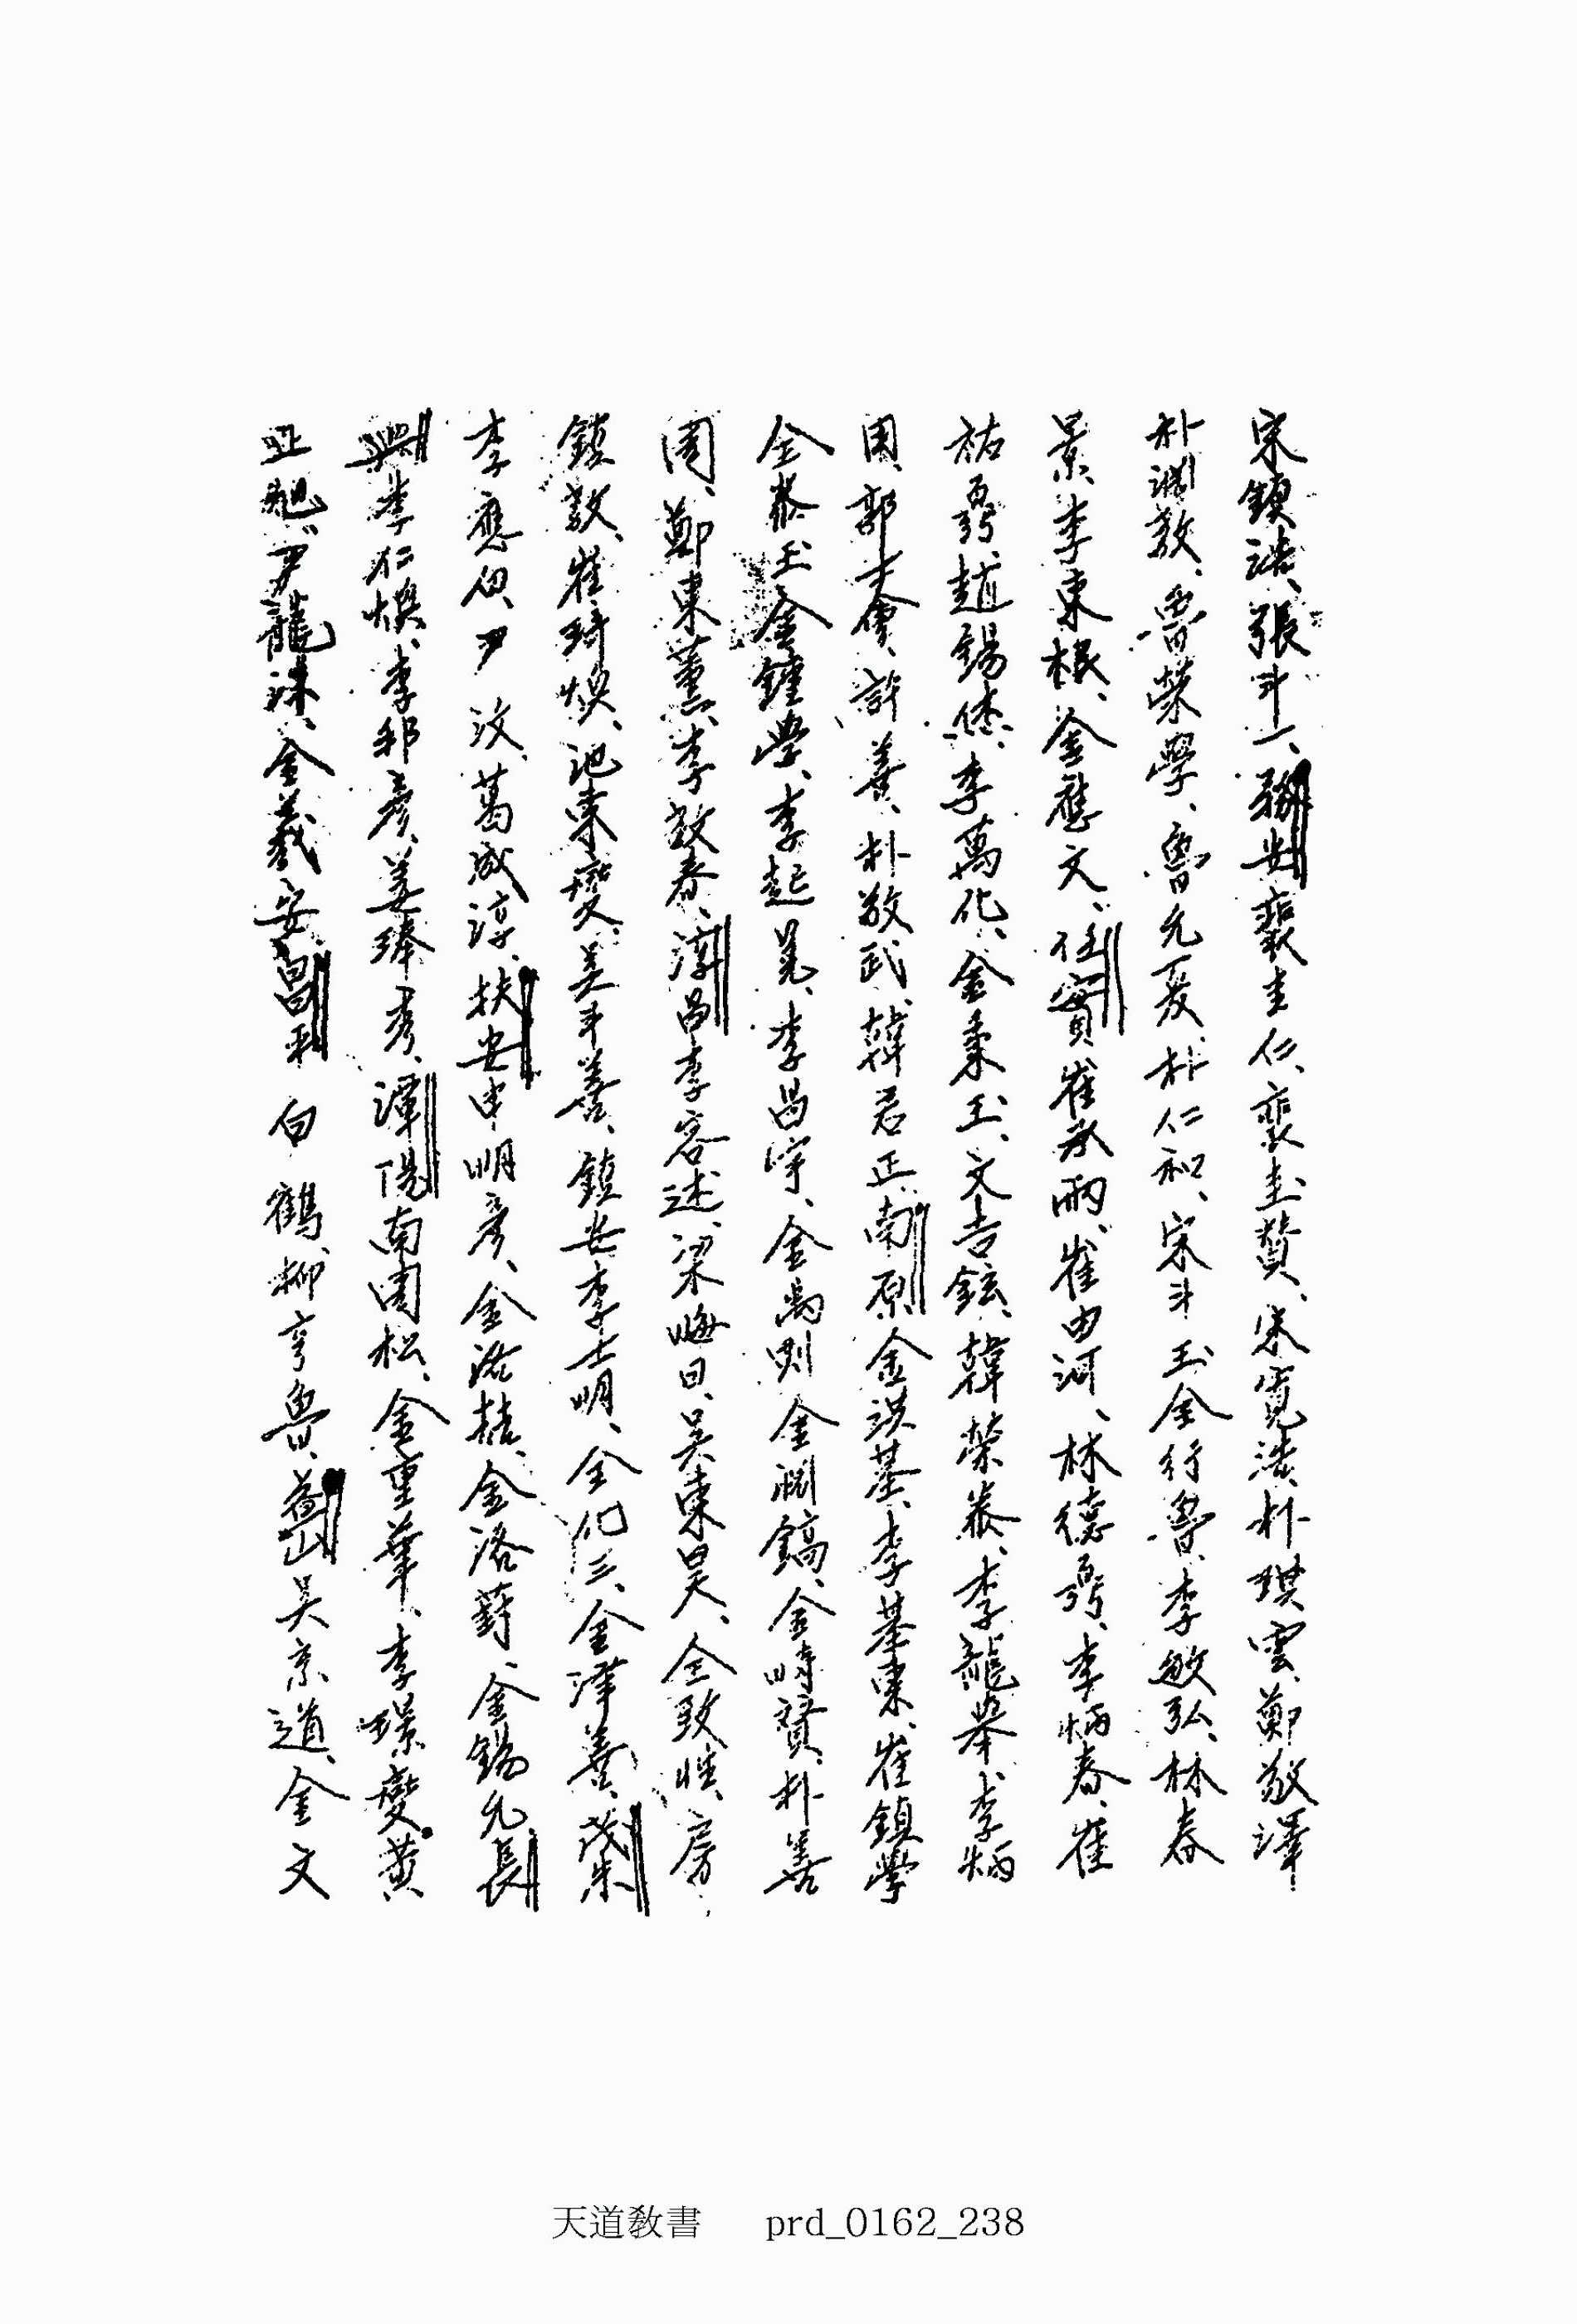 宋鎮浩、張斗一、務安裵圭仁、裵圭贊、宋寬浩、朴琪雲、鄭敬澤
朴淵敎、魯榮學、魯允夏、朴仁和、宋斗玉金行魯、李敏弘、林春
景、李東根、金應文、任實崔承雨、崔由河、林德弼、李炳春、崔
祐弼、趙錫烋、李萬化、金秉玉、文吉鉉、韓榮泰、李龍擧、李炳
用、郭士會、許善、朴敬武、韓君正、南原金洪基、李基東、崔鎭學
全泰玉金鍾學、李起冕、李昌宇、金禹則金淵鎬、金時贊、朴善
周、鄭東薰、李敎春、淳昌李容述、梁晦日、吳東昊、全致性、房
鎭敎、崔琦煥、池東燮、吳斗善、鎭安李士明、全化三、金澤善、茂朱
李應伯、尹汶、葛成淳、扶安申明彥、金洛喆、金洛葑、金錫允、長
興李仁煥、李邦彥、姜琫秀、潭陽南周松、金重華、李璟燮、黃
正旭、尹龍洙、金羲安、昌平白鶴、柳亨魯、古阜吳京道、金文
天道敎書 prd_0162_238